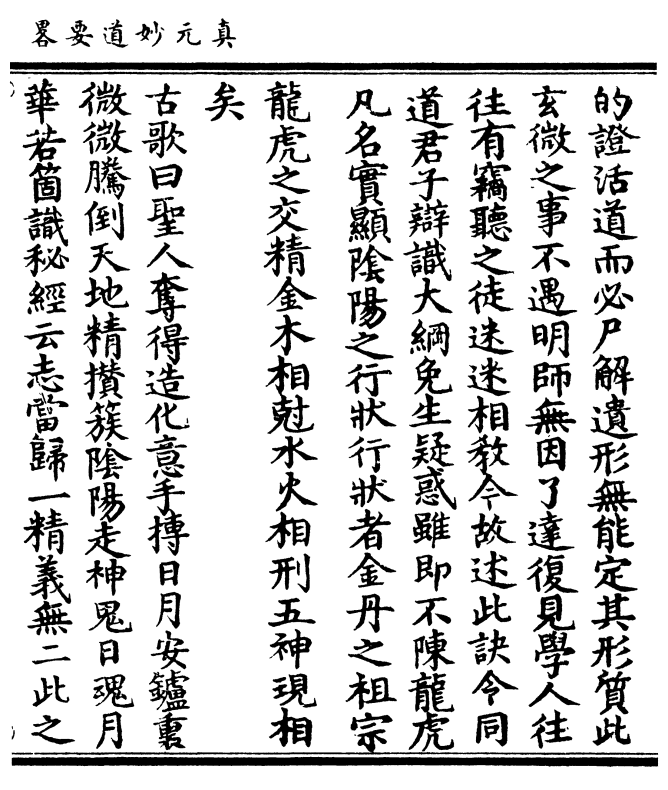 真元妙道要畧
的證活道而必尸解遺形無能定其形質此
玄微之事不遇明師無因了達復見學人往
往有竊聽之徒迷迷相教今故述此訣令同
道君子辯識大綱免生疑惑雖即不陳龍虎
凡名實顯陰陽之行狀行狀者金丹之祖宗
龍虎之交精金木相尅水火相刑五神現相
矣
古歌曰聖人奪得造化意手摶日月安鑪裏
微微騰倒天地精攢簇陰陽走神鬼日魂月
華若箇識秘經云志當歸一精義無二此之